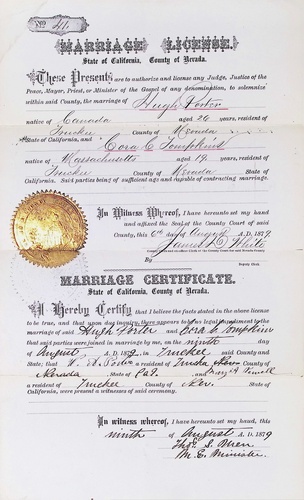 No 
MARRIAGE LICENSE.
State of California, County of Nevada.
These Presents are to authorize and license any Judge, Justice of the
Peace, Mayor, Priest, or Minister of the Gospel of any denomination, to solemnize
within said County, the marriage of Hugh Porter
native of Canada aged 26 years, resident of
Truckee County of Nevada
State of California, and Cora C Tompkins
native of Massachusetts aged 19 years, resident of
Truckee County of Nevada State of
California. Said parties being of sufficient age and capable of contracting marriage.
In Witness Whereof, I have hereunto set my hand
and affixed the Seal of the County Court of said
County, this 6th day of August A. D. 1879
James D White
Deputy Clerk
MARRIAGE CERTIFICATE.
State of California, County of Nevada.
I Hereby Certify that I believe the facts stated in the above license
to be true, and that upon due inquiry, there appears to be no legal impediment to the
marriage of said Hugh Porter and Cora C Tompkins
that said parties were joined in marriage by me, on the ninth day
of August A. D. 1879, in Truckee said County and
State; that Porter a resident of Truckee County of
Nevada State of Cal. and
a resident of Truckee County of Nev. State of
California, were present as witnesses of said ceremony.
In witness whereof, I have hereunto set my hand, this
ninth of August A. D. 1879
S.
M. E. Minister.